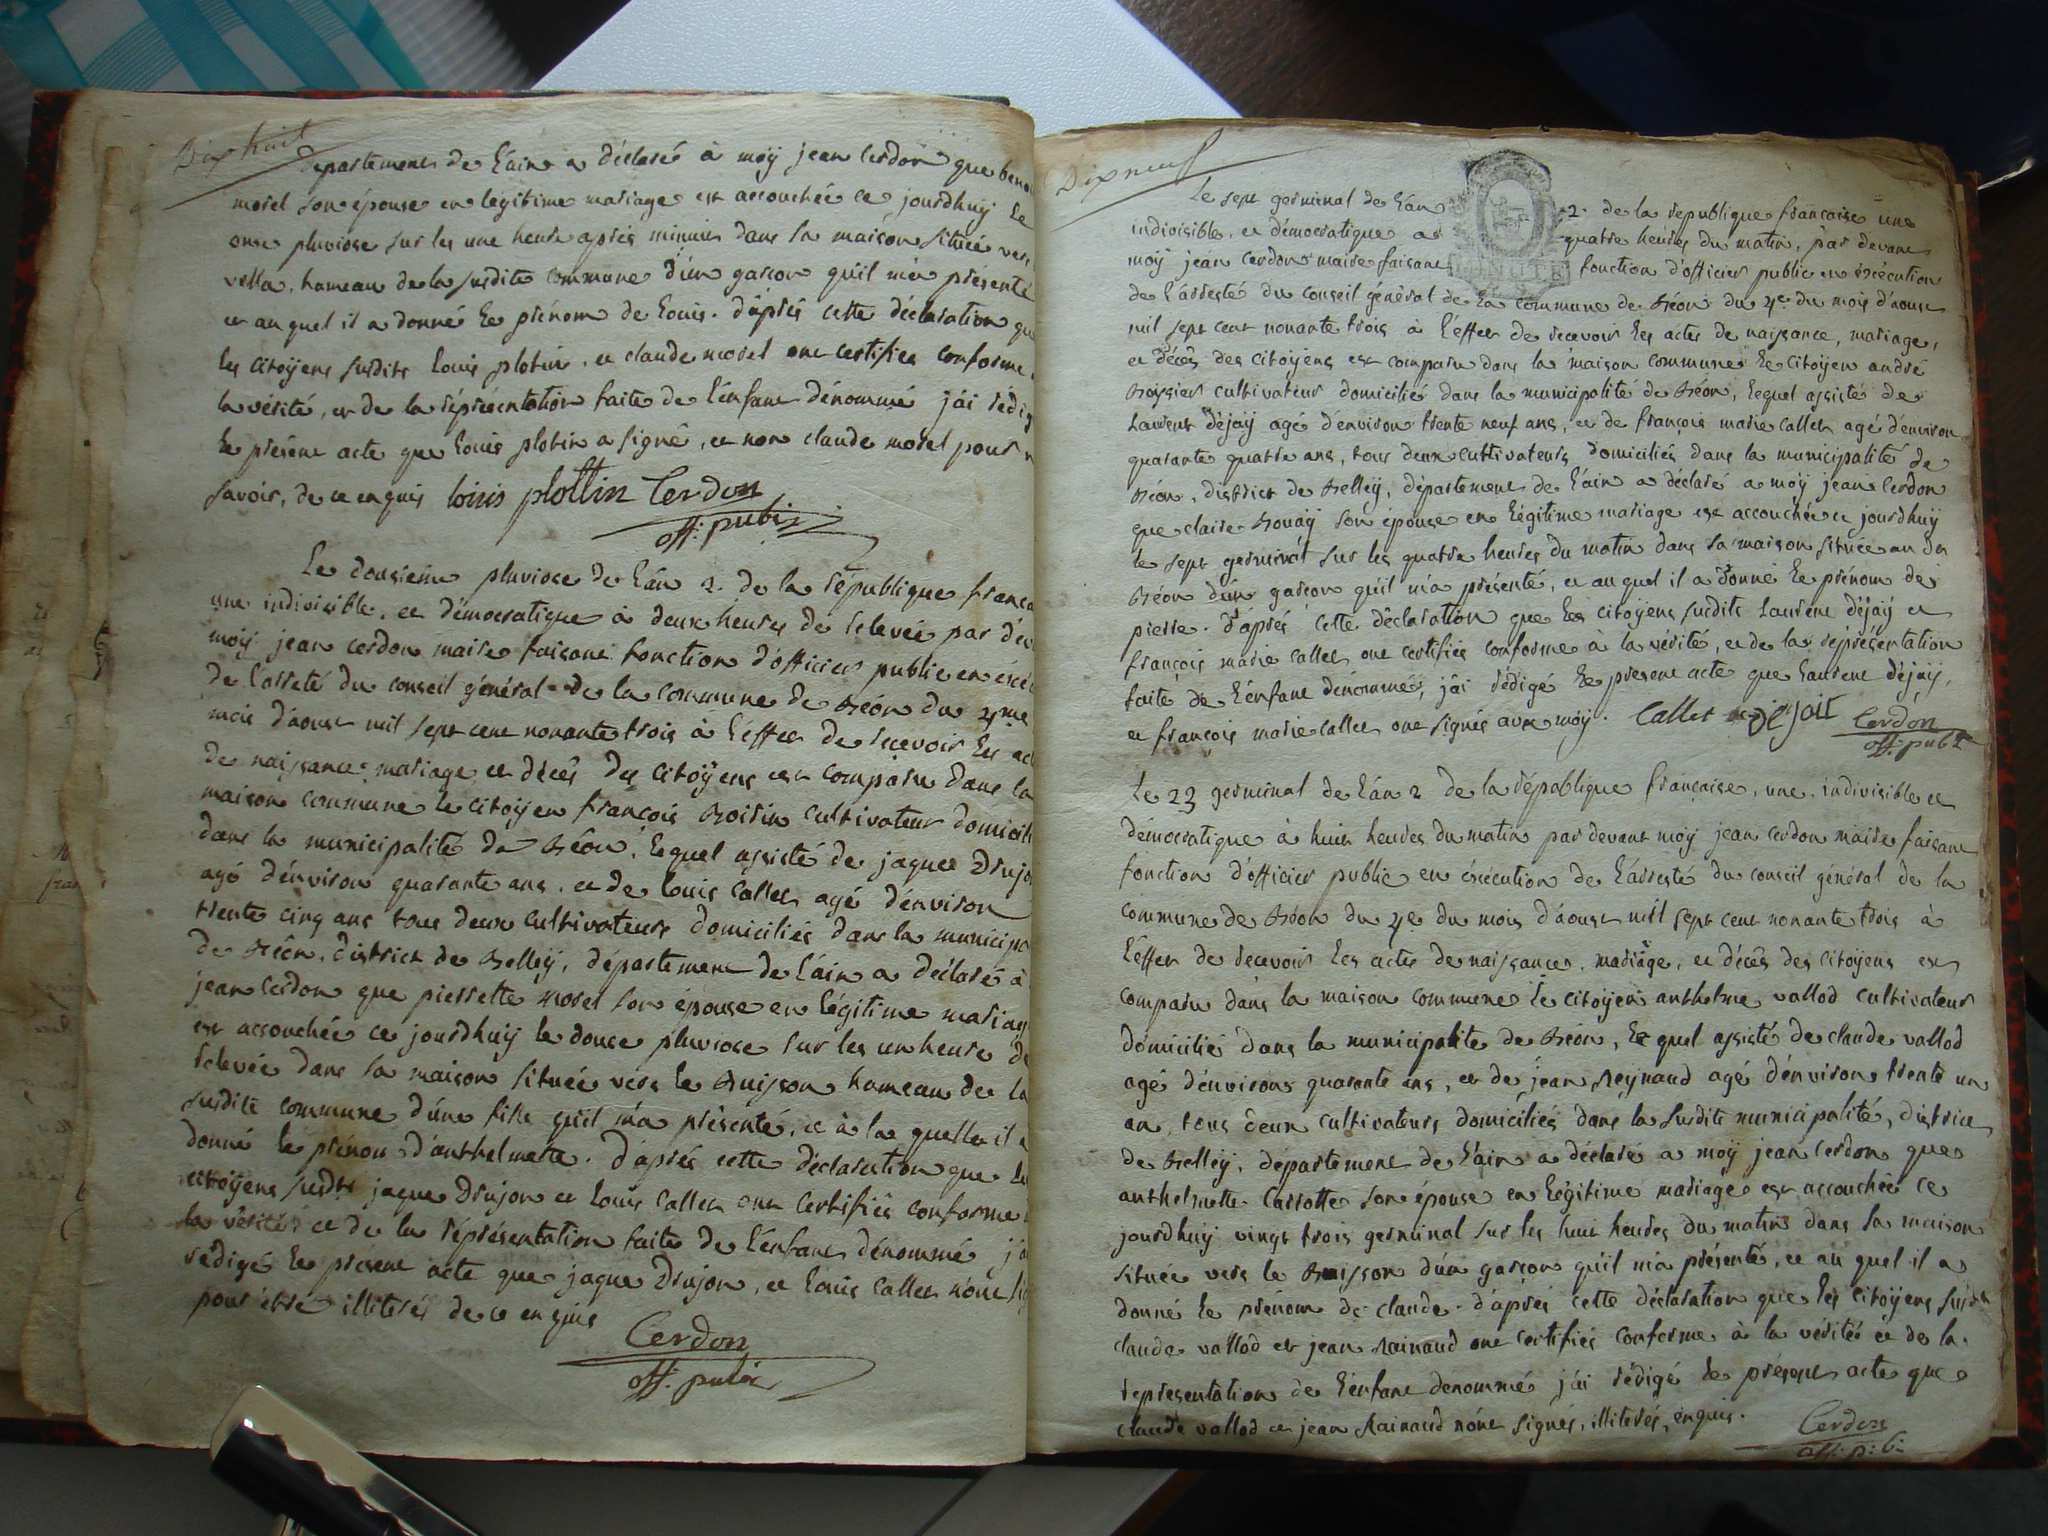 Dix huit
departement de l'ain a déclaré à moÿ jean Cerdon que beno
morel son épouse en légitime mariage est accouchée ce jourdhuÿ le
onse pluviose sur les une heure aprés minuit dans sa maison située vers
vella, hameau de la susdite commune d'un garcon qu'il m'a présenté
et au quel il a donné le prénom de Louis. d'aprés cette déclaration que
les citoÿens susdits Louis plotin, et claude morel ont certifiés conforme
la vérité, et de la réprésentation faite de l'enfant dénommé j'ai rédig
le présent acte que Louis plotin a signé, et non claude morel pour n
savoir, de ce enquis louis plottin Cerdon
off: public
Le dousieme pluviose de l'an 2. de la république frança
une indivisible, et démocratique à deux heures de relevée par dev
moÿ jean cerdon maire faisant fonction d'officier public en exéc
de l'arreté du conseil général de la commune de Béon du 4me
mois d'aoust mil sept cent nonante trois à l'effet de recevoir les act
de naissance mariage et décés des citoÿens est comparu dans la
maison commune le citoÿen françois Roisin cultivateur domicili
dans la municipalité de Béon, lequel assisté de jaque Drujo
agé d'environ quarante ans, et de Louis Callet agé d'environ
trente cinq ans tous deux cultivateurs domiciliés dans la municipa
de Béon, district de Belleÿ, département de l'ain a déclaré à
jean Cerdon que pierrette morel son épouse en légitime mariag
est accouchée ce jourdhuÿ le douse pluviose sur les un heure de
relevée dans sa maison située vers le Buisson hameau de la
susdite commune d'une fille qu'il m'a présenté, et à la quelle il a
donné le prénom d'anthelmette. d'aprés cette déclaration que les
citoÿens susdts jaque Drujon et Louis Callet ont certifiés conforme
la vérité et de la réprésentation faite de l'enfant dénommé j'a
rédigé le présent acte que jaque Drujon, et Louis Callet n'ont sig
pour etre illiterés de ce enquis
Cerdon
off. public
Dix neuf
Le sept germinal de l'an 2. de la republique française une
indivisible, et démocratique a quatre heures du matin, par devant
moÿ jean Cerdon maire faisant fonction d'officier public en éxécution
de l'arresté du conseil général de la commune de Béon du 4e du mois d'aoust
mil sept cent nonante trois à l'effet de recevoir les actes de naissance, mariage,
et décés des citoÿens est comparu dans la maison commune le citoÿen andré
Rossier cultivateur domicilié dans la municipalité de Béon, lequel assisté de
Laurent Déjaÿ agé d'environ trente neuf ans, et de françois marie callet agé d'environ
quarante quatre ans, tous deux cultivateurs domiciliés dans la municipalité de
Béon, district de Belleÿ, département de l'ain a déclaré a moÿ jean Cerdon
que claire Bouaÿ son épouse en légitime mariage est accouchée ce jourdhuÿ
le sept germinal sur les quatre heures du matin dans sa maison située au dit
Béon d'un garcon qu'il m'a présenté, et au quel il a donné le prénom de
pierre. d'aprés cette déclaration que les citoÿens susdits Laurent Déjaÿ et
françois marie callet ont certifiés conforme à la vérité, et de la réprésentation
faite de l'enfant dénommé, j'ai rédigé le present acte que Laurent Déjaÿ,
et françois marie callet ont signés avec moÿ. Callet Cerdon
off: public
Le 23 germinal de l'an 2 de la république française, une, indivisible et
démocratique à huit heures du matin par devant moÿ jean cerdon maire faisant
fonction d'officier public en éxécution de l'arresté du conseil général de la
commune de Béon du 4e du mois d'aoust mil sept cent nonante trois à
l'effet de recevoir les actes de naissances, mariage, et décés des citoÿens est
comparu dans la maison commune le citoÿen anthelme vallod cultivateur
domicilié dans la municipalité de Béon, le quel assisté de claude vallod
agé d'environ quarante ans, et de jean Reynaud agé d'environ trente un
an, tous deux cultivateurs domiciliés dans la susdite municipalité, district
de Belleÿ, département de l'ain a déclaré a moÿ jean Cerdon que
anthelmette Carrotte son épouse en légitime mariage est accouchée ce
jourdhuÿ vingt trois germinal sur les huit heures du matin dans sa maison
située vers le Buisson d'un garçon qu'il m'a présenté, et au quel il a
donné le prénom de claude. d'aprés cette déclaration que les citoÿens susdts
claude vallod et jean Rainaud ont certifiés conforme à la vérité et de la
representation de l'enfant denommé j'ai rédigé le présent acte que
claude vallod et jean Rainaud n'ont signés, illiterés, enquis.
Cerdon
off: pub: